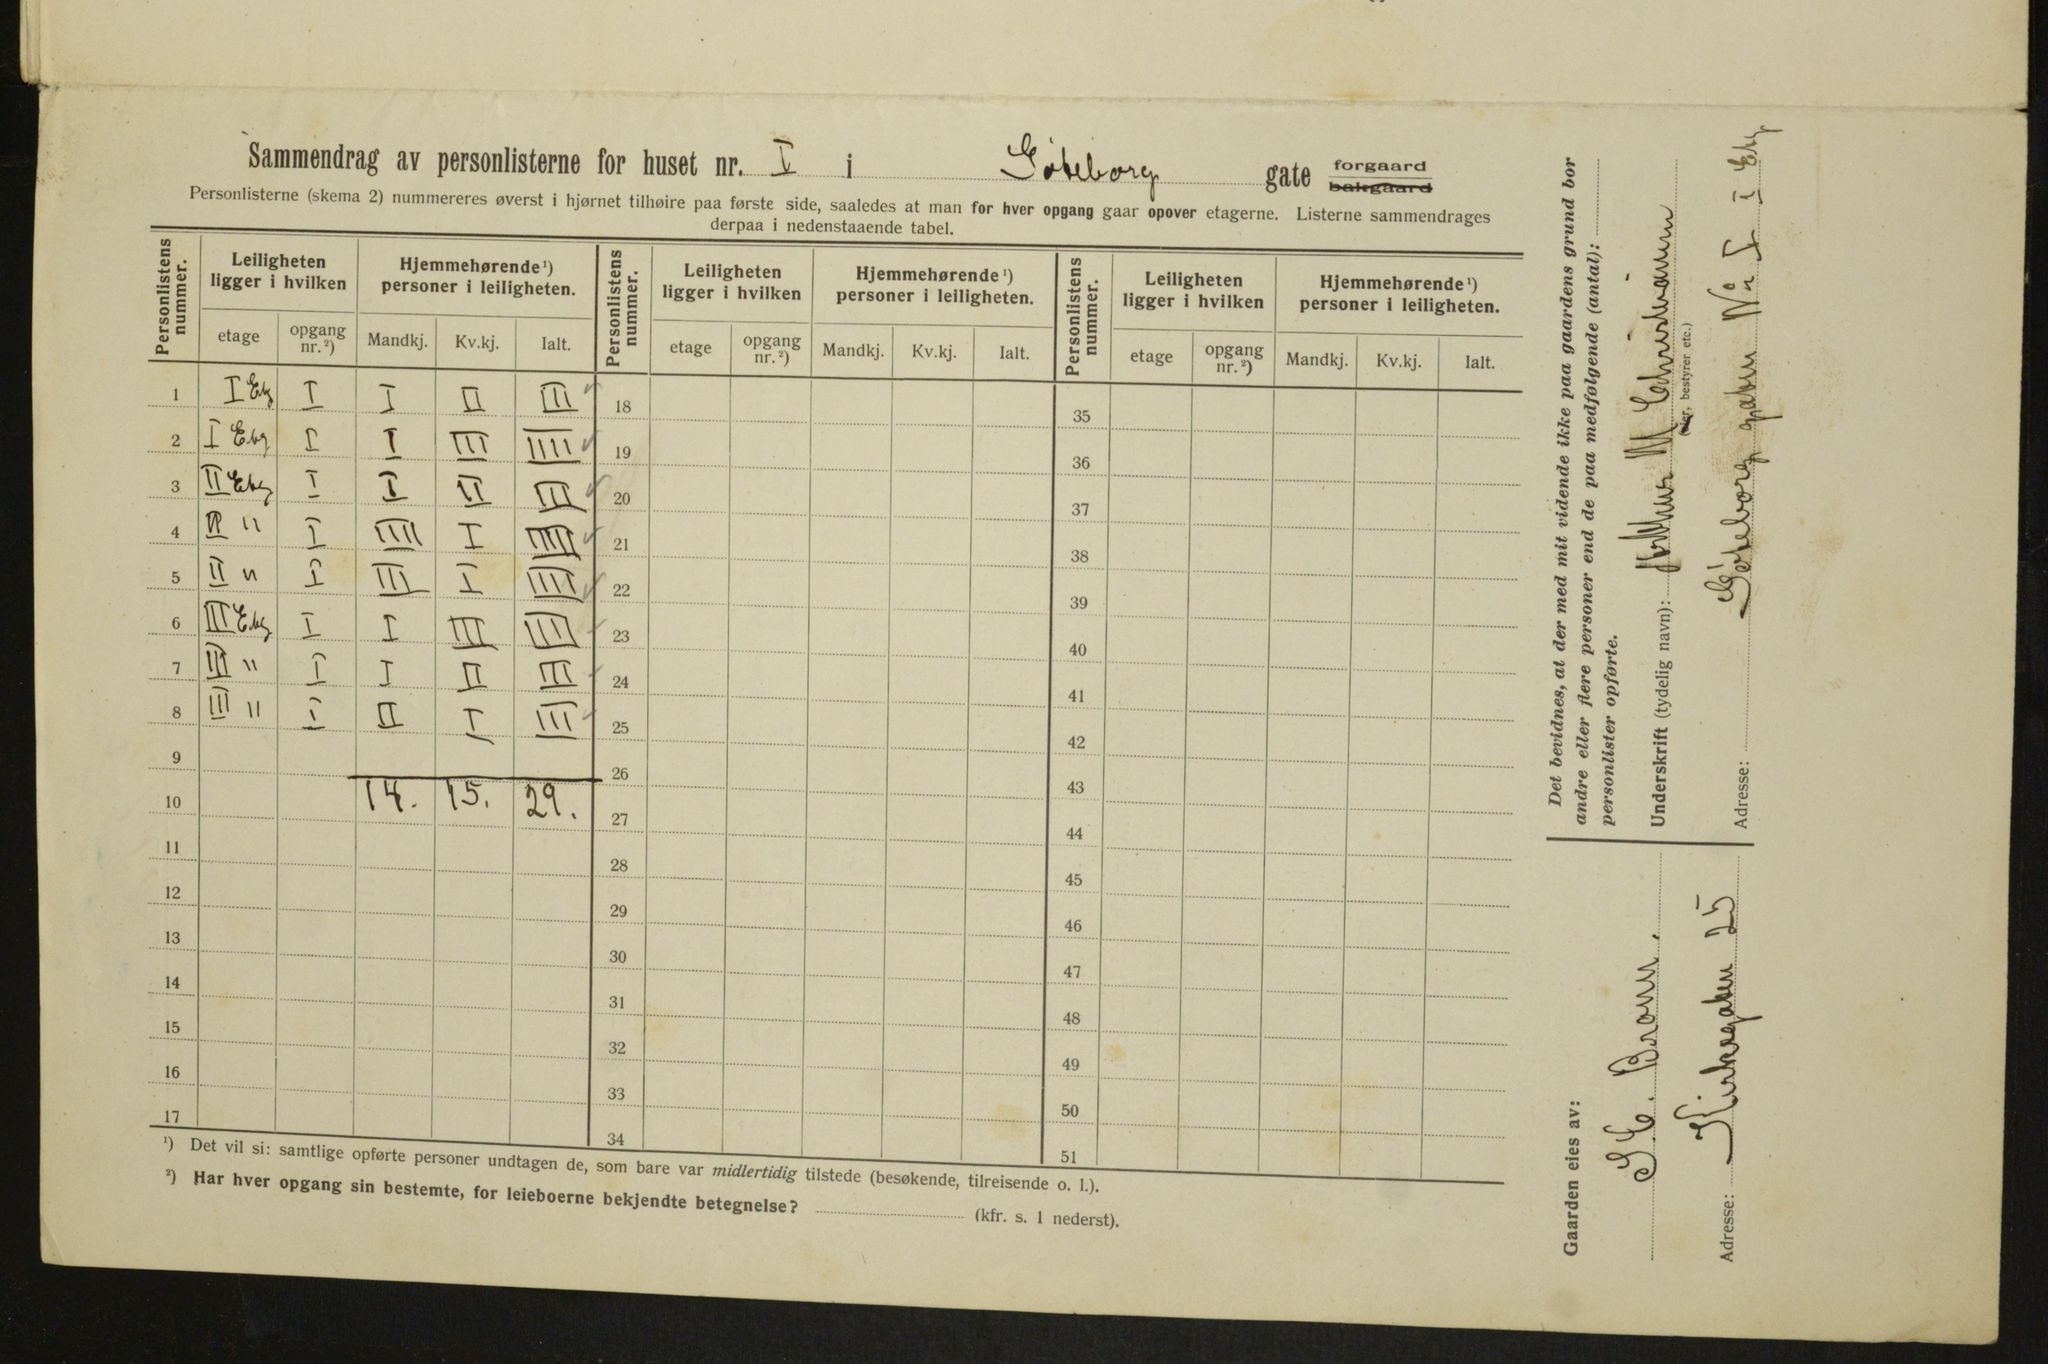 Sammendrag av personlisterne for huset nr. I i Göteborg gate forgaard bakgaard
Personlisterne (skema 2) nummereres øverst i hjørnet tilhøire paa første side, saaledes at man for hver opgang gaar opover etagerne. Listerne sammendrages
derpaa i nedenstaaende tabel.
Personlistens nummer. Leiligheten ligger i hvilken Hjemmehørende ¹) personer i leiligheten. Personlistens nummer. Leiligheten ligger i hvilken Hjemmehørende ¹) personer i leiligheten. Personlistens nummer. Leiligheten ligger i hvilken Hjemmehørende ¹) personer i leiligheten.
etage opgang nr. ²) Mandkj. Kv.kj. Ialt. etage opgang nr. ²) Mandkj. Kv.kj. Ialt. etage opgang nr. ²) Mandkj. Kv.kj. Ialt.
1 I Etg I I II III 18 35
2 I Etg I I III IIII 19 36
3 II Etg I I II III 20 37
4 II " I IIII I IIIII 21 38
5 II " I III I IIII 22 39
6 III Etg I I III IIII 23 40
7 III " I I II III 24 41
8 III " I II I III 25 42
9 26 43
10 14. 15. 29. 27 44
11 28 45
12 29 46
13 30 47
14 31 48
15 32 49
16 33 50
17 34 51
¹) Det vil si: samtlige opførte personer undtagen de, som bare var midlertidig tilstede (besøkende, tilreisende o. l.).
²) Har hver opgang sin bestemte, for leieboerne bekjendte betegnelse? (kfr. s. 1 nederst).
Det bevidnes, at der med mit vidende ikke paa gaardens grund bor
andre eller flere personer end de paa medfølgende (antal):
personlister opførte.
Underskrift (tydelig navn): Arthur M Christiansen
(eier, bestyrer etc.)
Adresse: Göteborg gaten No I i Etg
Gaarden eies av:
Adresse: Kirkegaten 25